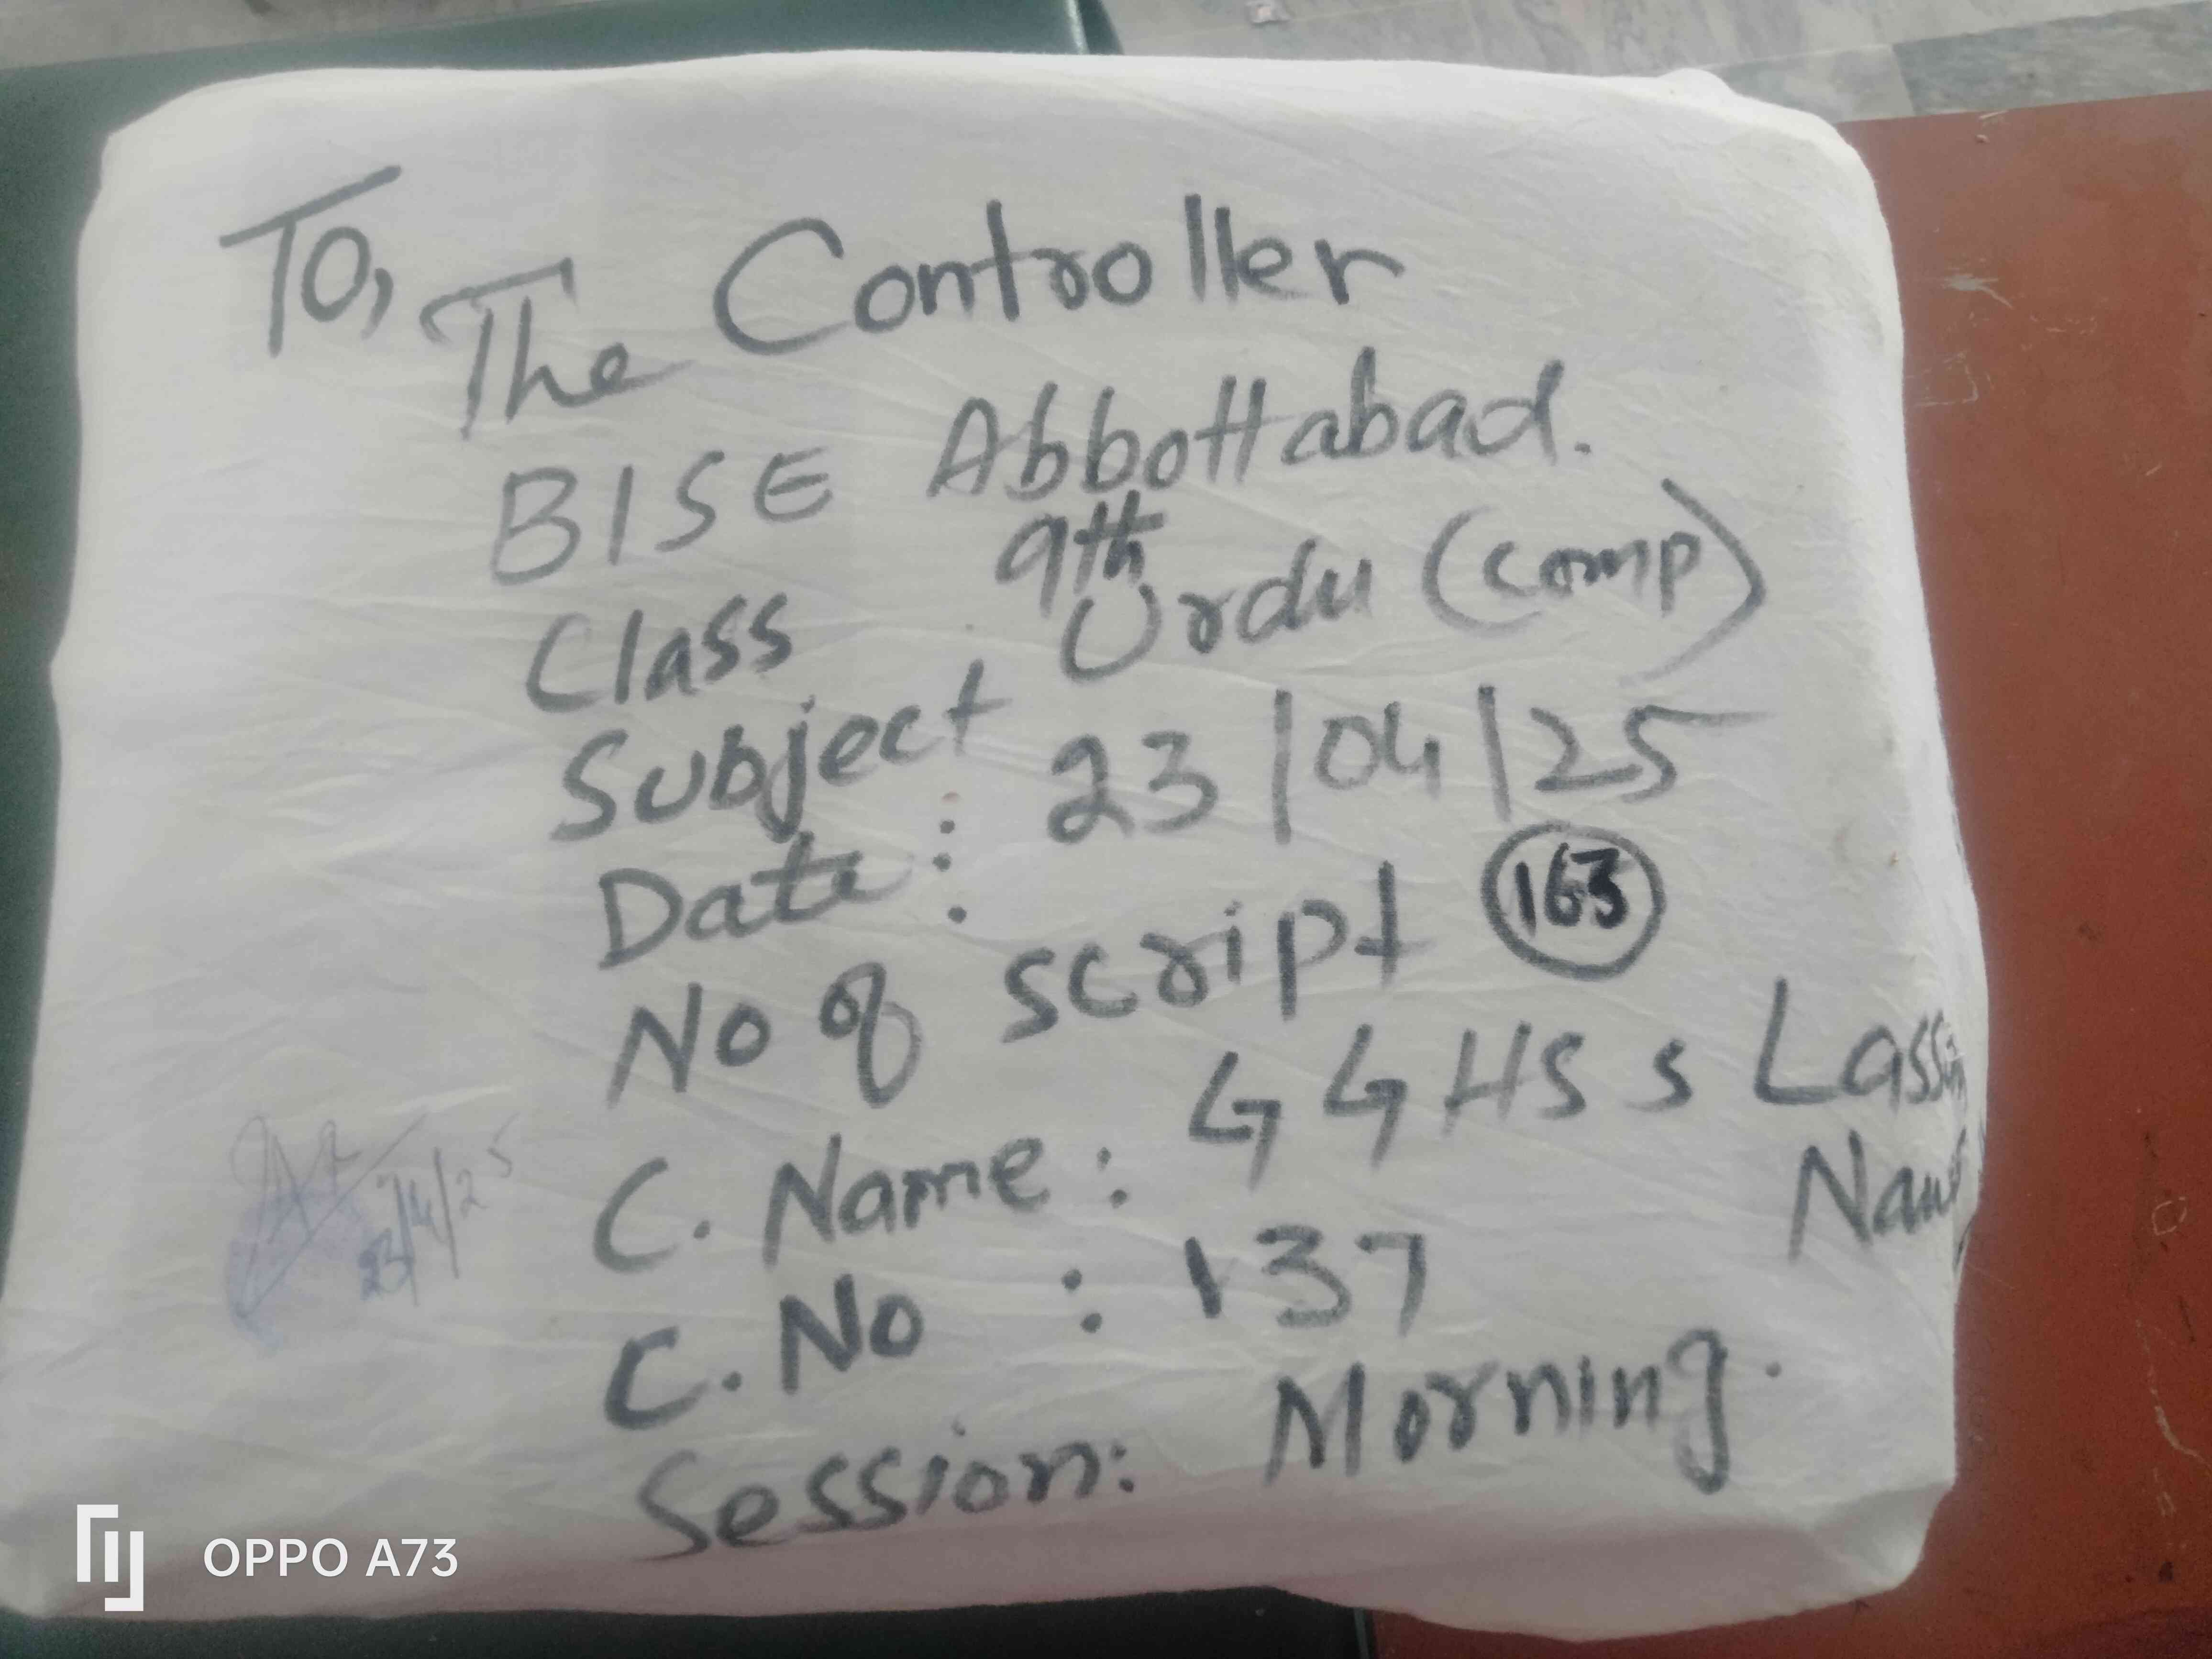 To,
The Controller
BISE Abbottabad.
Class 9th
Subject Urdu (comp)
Date: 23/04/25
No of script 163
C. Name: GGHSS
C. No : 137
Session: Morning.
23/4/25
OPPO A73